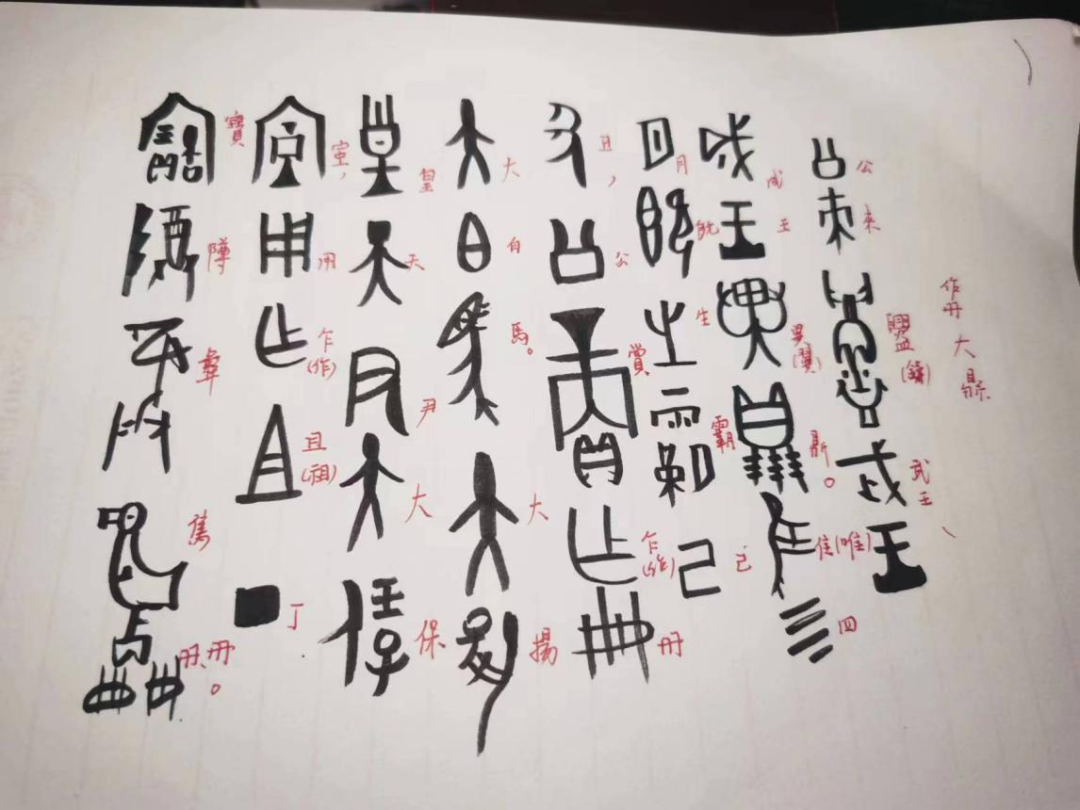 作冊大鼎
公來(鑄)武王、
成王異(翼)鼎。隹(唯)四
月既生霸己
丑,公賞乍(作)冊
大白馬。大揚
皇天尹大保
室,用乍(作)且(祖)丁
寶障彝雋冊冊。